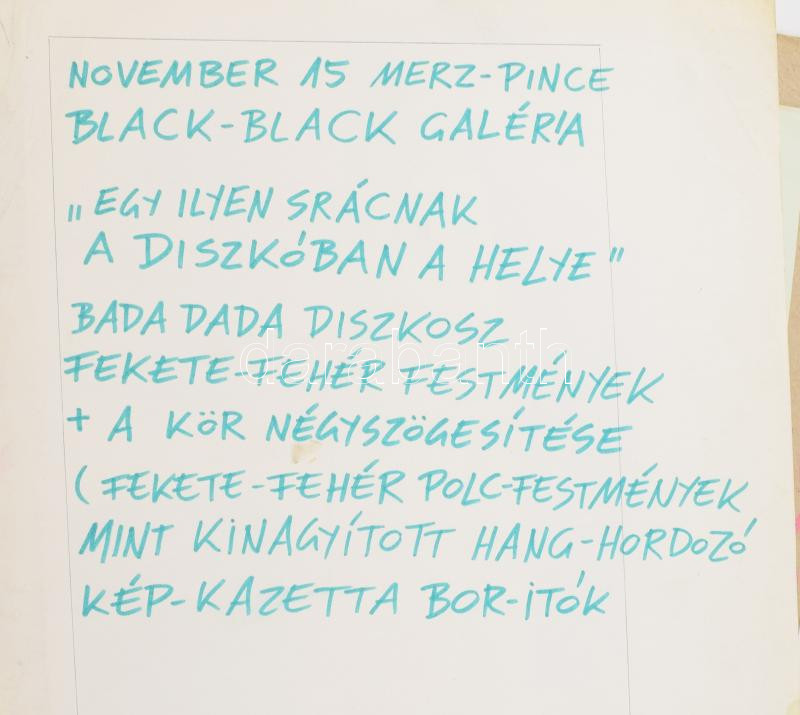 NOVEMBER 15 MERZ-PINCE
BLACK-BLACK GALÉRIA
„EGY ILYEN SRÁCNAK
A DISZKÓBAN A HELYE"
BADA DADA DISZKOSZ
FEKETE-FEHÉR FESTMÉNYEK
+ A KÖR NÉGYSZÖGESÍTÉSE
(FEKETE-FEHÉR POLC-FESTMÉNYEK
MINT KINAGYÍTOTT HANG-HORDOZÓ
KÉP-KAZETTA BOR-ITÓK
darabanth